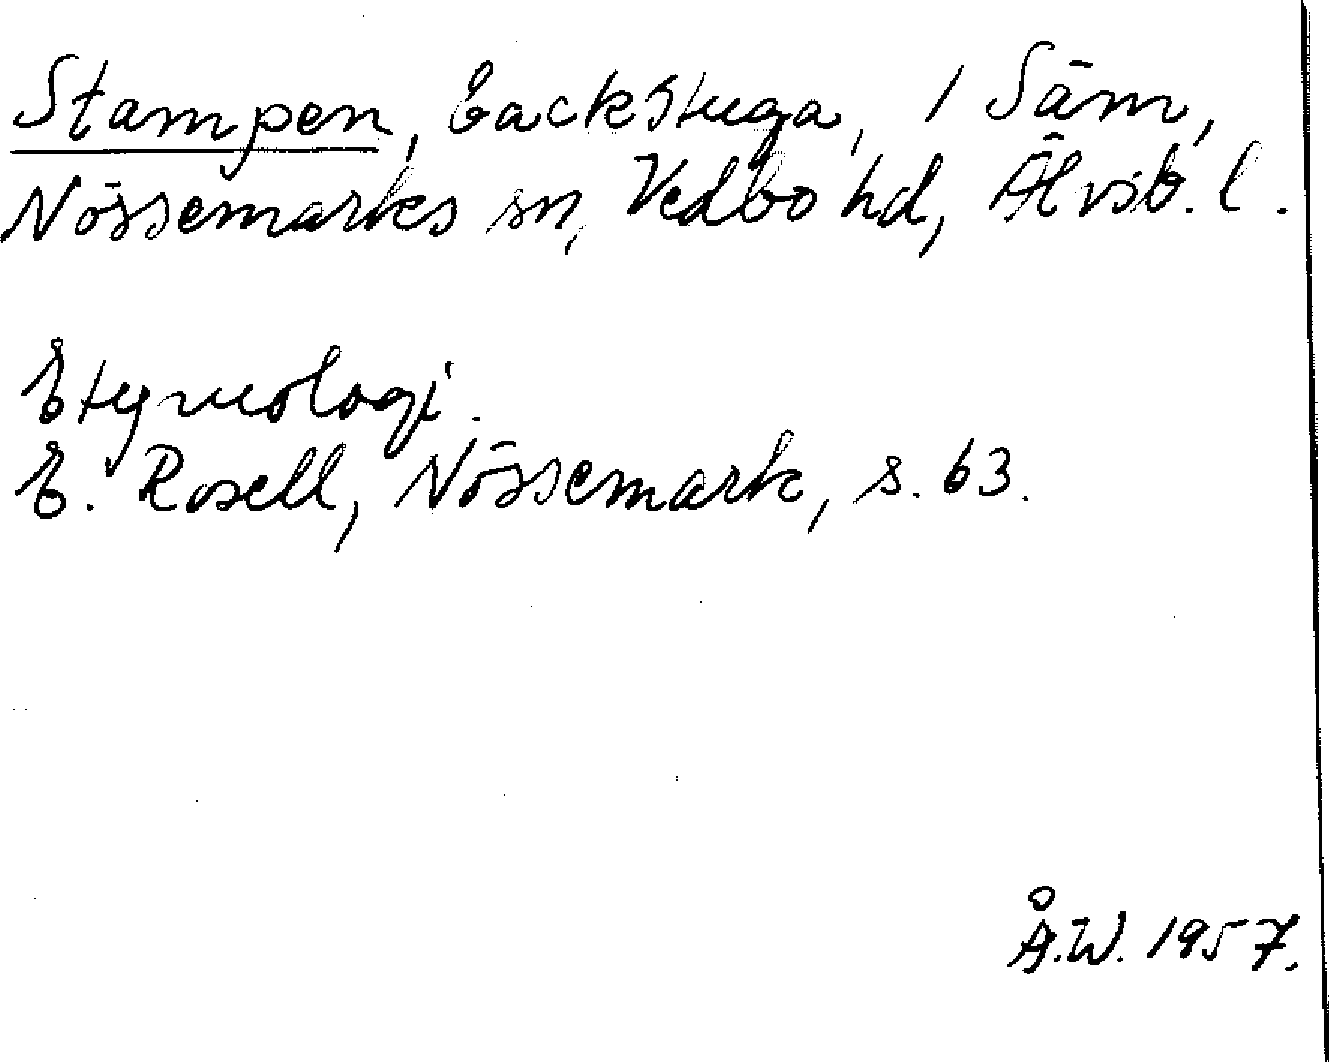 Stampen, backstuga, 1 Säm,
Nössemarks sn, Vedbo hd, Älvsb. l.
Etymologi.
E. Rosell, Nössemark, s. 63.
Å.W. 1957.